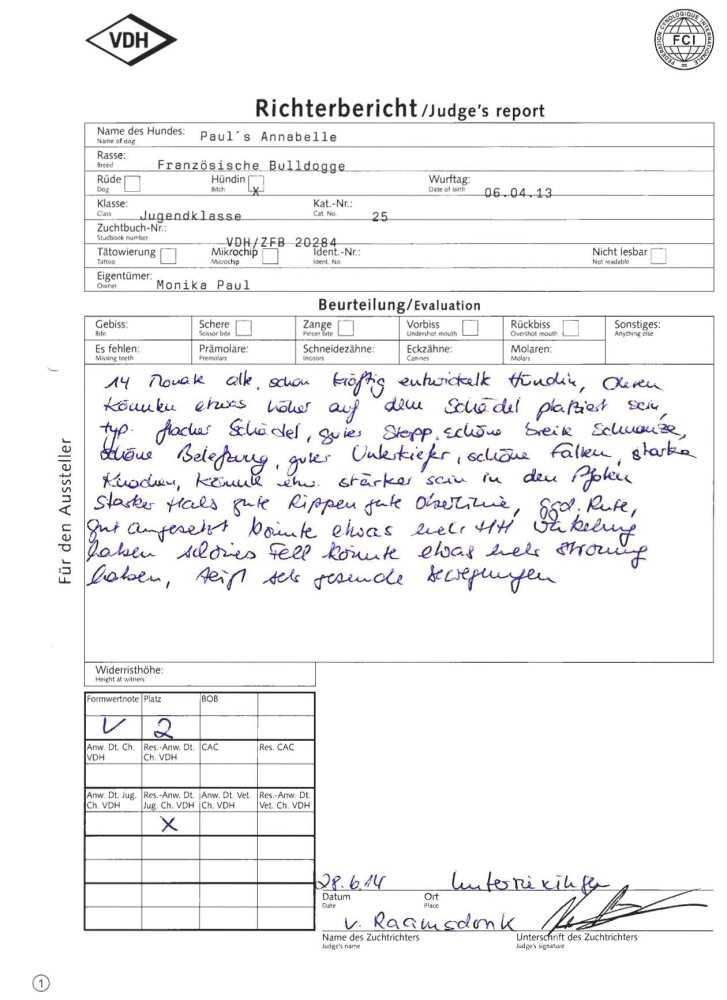 VDH
FEDERATION CYNOLOGIQUE INTERNATIONALE
FCI
Richterbericht/Judge's report
Name des Hundes: Paul´s Annabelle
Name of dog
Rasse: Französische Bulldogge
Breed
Rüde Hündin X Wurftag: 06.04.13
Dog Bitch Date of birth
Klasse: Jugendklasse Kat.-Nr.: 25
Class Cat. No.
Zuchtbuch-Nr.: VDH/ZFB 20284
Studbook number
Tätowierung Mikrochip Ident.-Nr.: Nicht lesbar
Tattoo Microchip Ident. No Not readable
Eigentümer: Monika Paul
Owner
Beurteilung/Evaluation
Gebiss: Schere Zange Vorbiss Rückbiss Sonstiges:
Bite Scissor bite Pincer bite Undershot mouth Overshot mouth Anything else
Es fehlen: Prämolare: Schneidezähne: Eckzähne: Molaren:
Missing teeth Premolars Incisors Canines Molars
14 alt, schon kräftig entwickelt Hündin, Ohren
könnten etwas höher auf dem Schädel platziert sein,
typ. flacher Schädel, guter Stopp, schöne breite Schnauze,
schöne Belefzung, guter Unterkiefer, schöne Falten, starke
Knochen, könnte etw. stärker sein in den Pfoten
Starker Hals gute Rippen gute Oberlinie, Rute,
gut angesetzt könnte etwas mehr HH Winkelung
haben schönes Fell könnte etwas mehr
haben, zeigt sehr Bewegungen
Für den Aussteller
Widerristhöhe:
Height at withers
Formwertnote Platz BOB
V 2
Anw. Dt. Ch. VDH Res.-Anw. Dt. Ch. VDH CAC Res. CAC
Anw. Dt. Jug. Ch. VDH Res.-Anw. Dt. Jug. Ch. VDH Anw. Dt. Vet. Ch. VDH Res.-Anw. Dt. Vet. Ch. VDH
X
28.6.14 Unterriexingen
Datum Ort
Date Place
v. Raamsdonk
Name des Zuchtrichters Unterschrift des Zuchtrichters
Judge's name Judge's signature
1